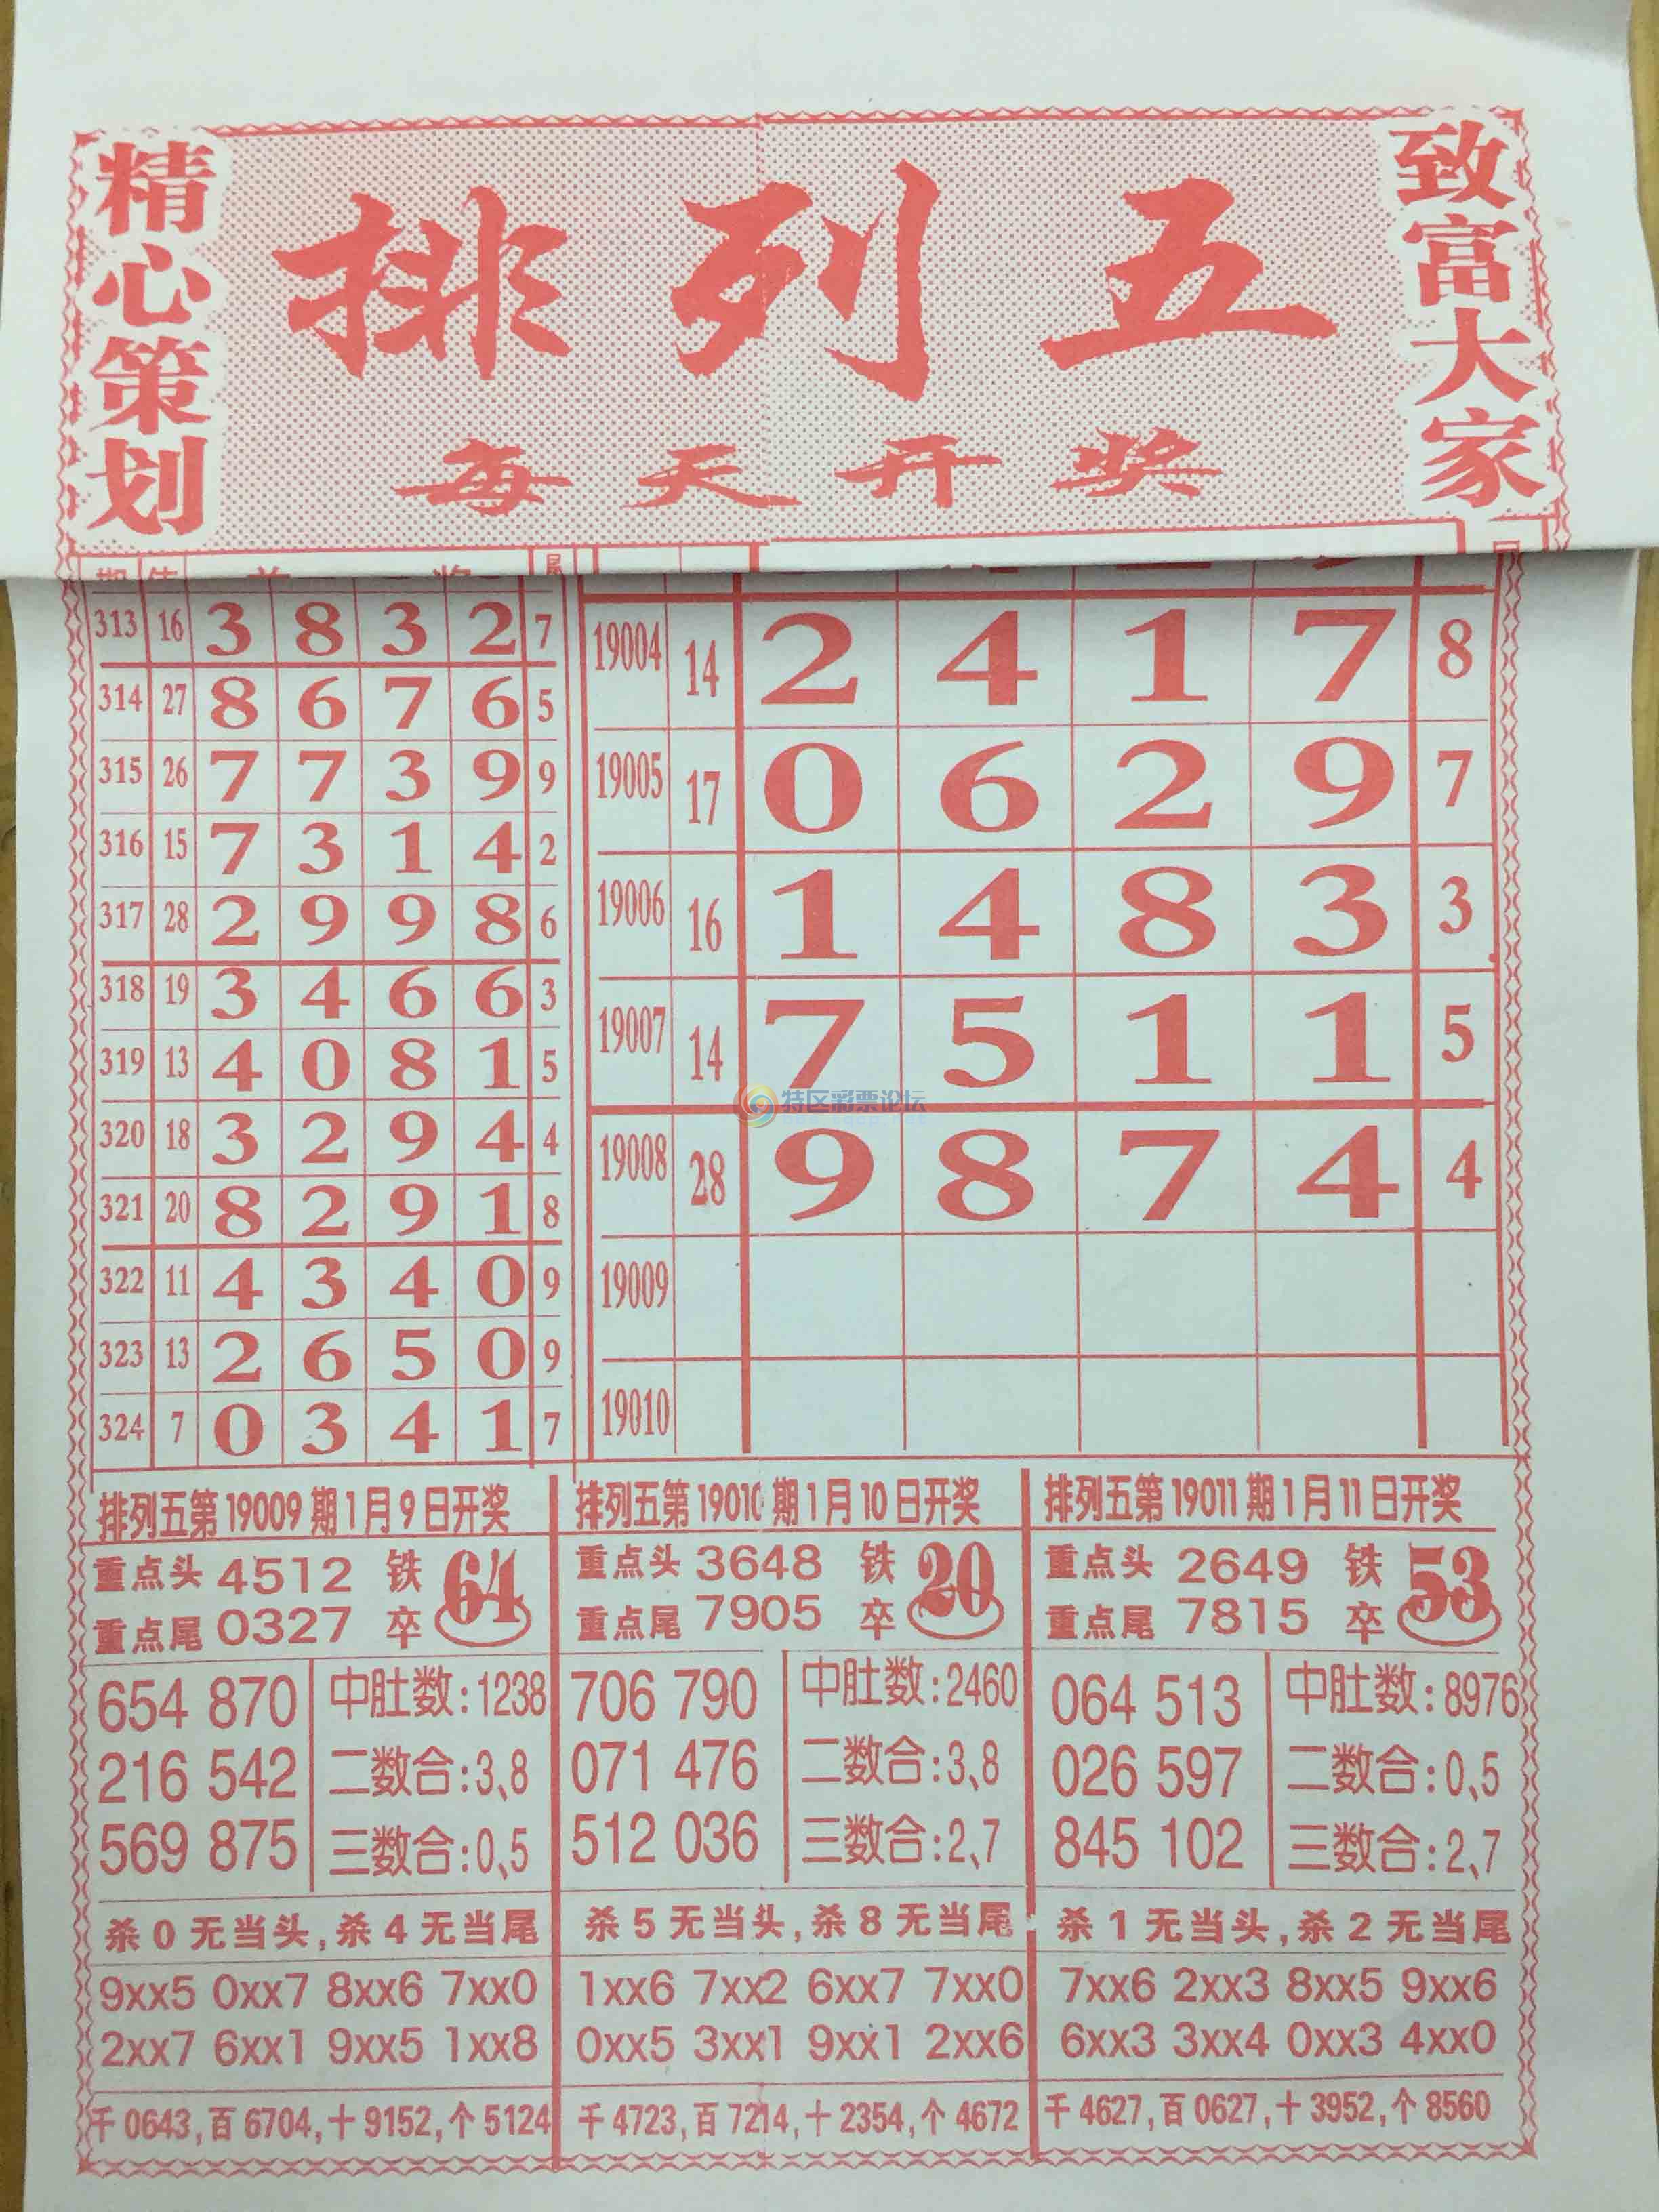 精心策划
排列五
每天开奖
致富大家
313 16 3 8 3 2 7
314 27 8 6 7 6 5
315 26 7 7 3 9 9
316 15 7 3 1 4 2
317 28 2 9 9 8 6
318 19 3 4 6 6 3
319 13 4 0 8 1 5
320 18 3 2 9 4 4
321 20 8 2 9 1 8
322 11 4 3 4 0 9
323 13 2 6 5 0 9
324 7 0 3 4 1 7
19004 14 2 4 1 7 8
19005 17 0 6 2 9 7
19006 16 1 4 8 3 3
19007 14 7 5 1 1 5
19008 28 9 8 7 4 4
19009
19010
特区彩票论坛
排列五第19009期1月9日开奖
重点头 4512 铁卒 64
重点尾 0327
654 870 中肚数:1238
216 542 二数合:3、8
569 875 三数合:0、5
杀0无当头,杀4无当尾
9xx5 0xx7 8xx6 7xx0
2xx7 6xx1 9xx5 1xx8
千0643,百6704,十9152,个5124
排列五第19010期1月10日开奖
重点头 3648 铁卒 20
重点尾 7905
706 790 中肚数:2460
071 476 二数合:3、8
512 036 三数合:2、7
杀5无当头,杀8无当尾
1xx6 7xx2 6xx7 7xx0
0xx5 3xx1 9xx1 2xx6
千4723,百7214,十2354,个4672
排列五第19011期1月11日开奖
重点头 2649 铁卒 53
重点尾 7815
064 513 中肚数:8976
026 597 二数合:0、5
845 102 三数合:2、7
杀1无当头,杀2无当尾
7xx6 2xx3 8xx5 9xx6
6xx3 3xx4 0xx3 4xx0
千4627,百0627,十3952,个8560